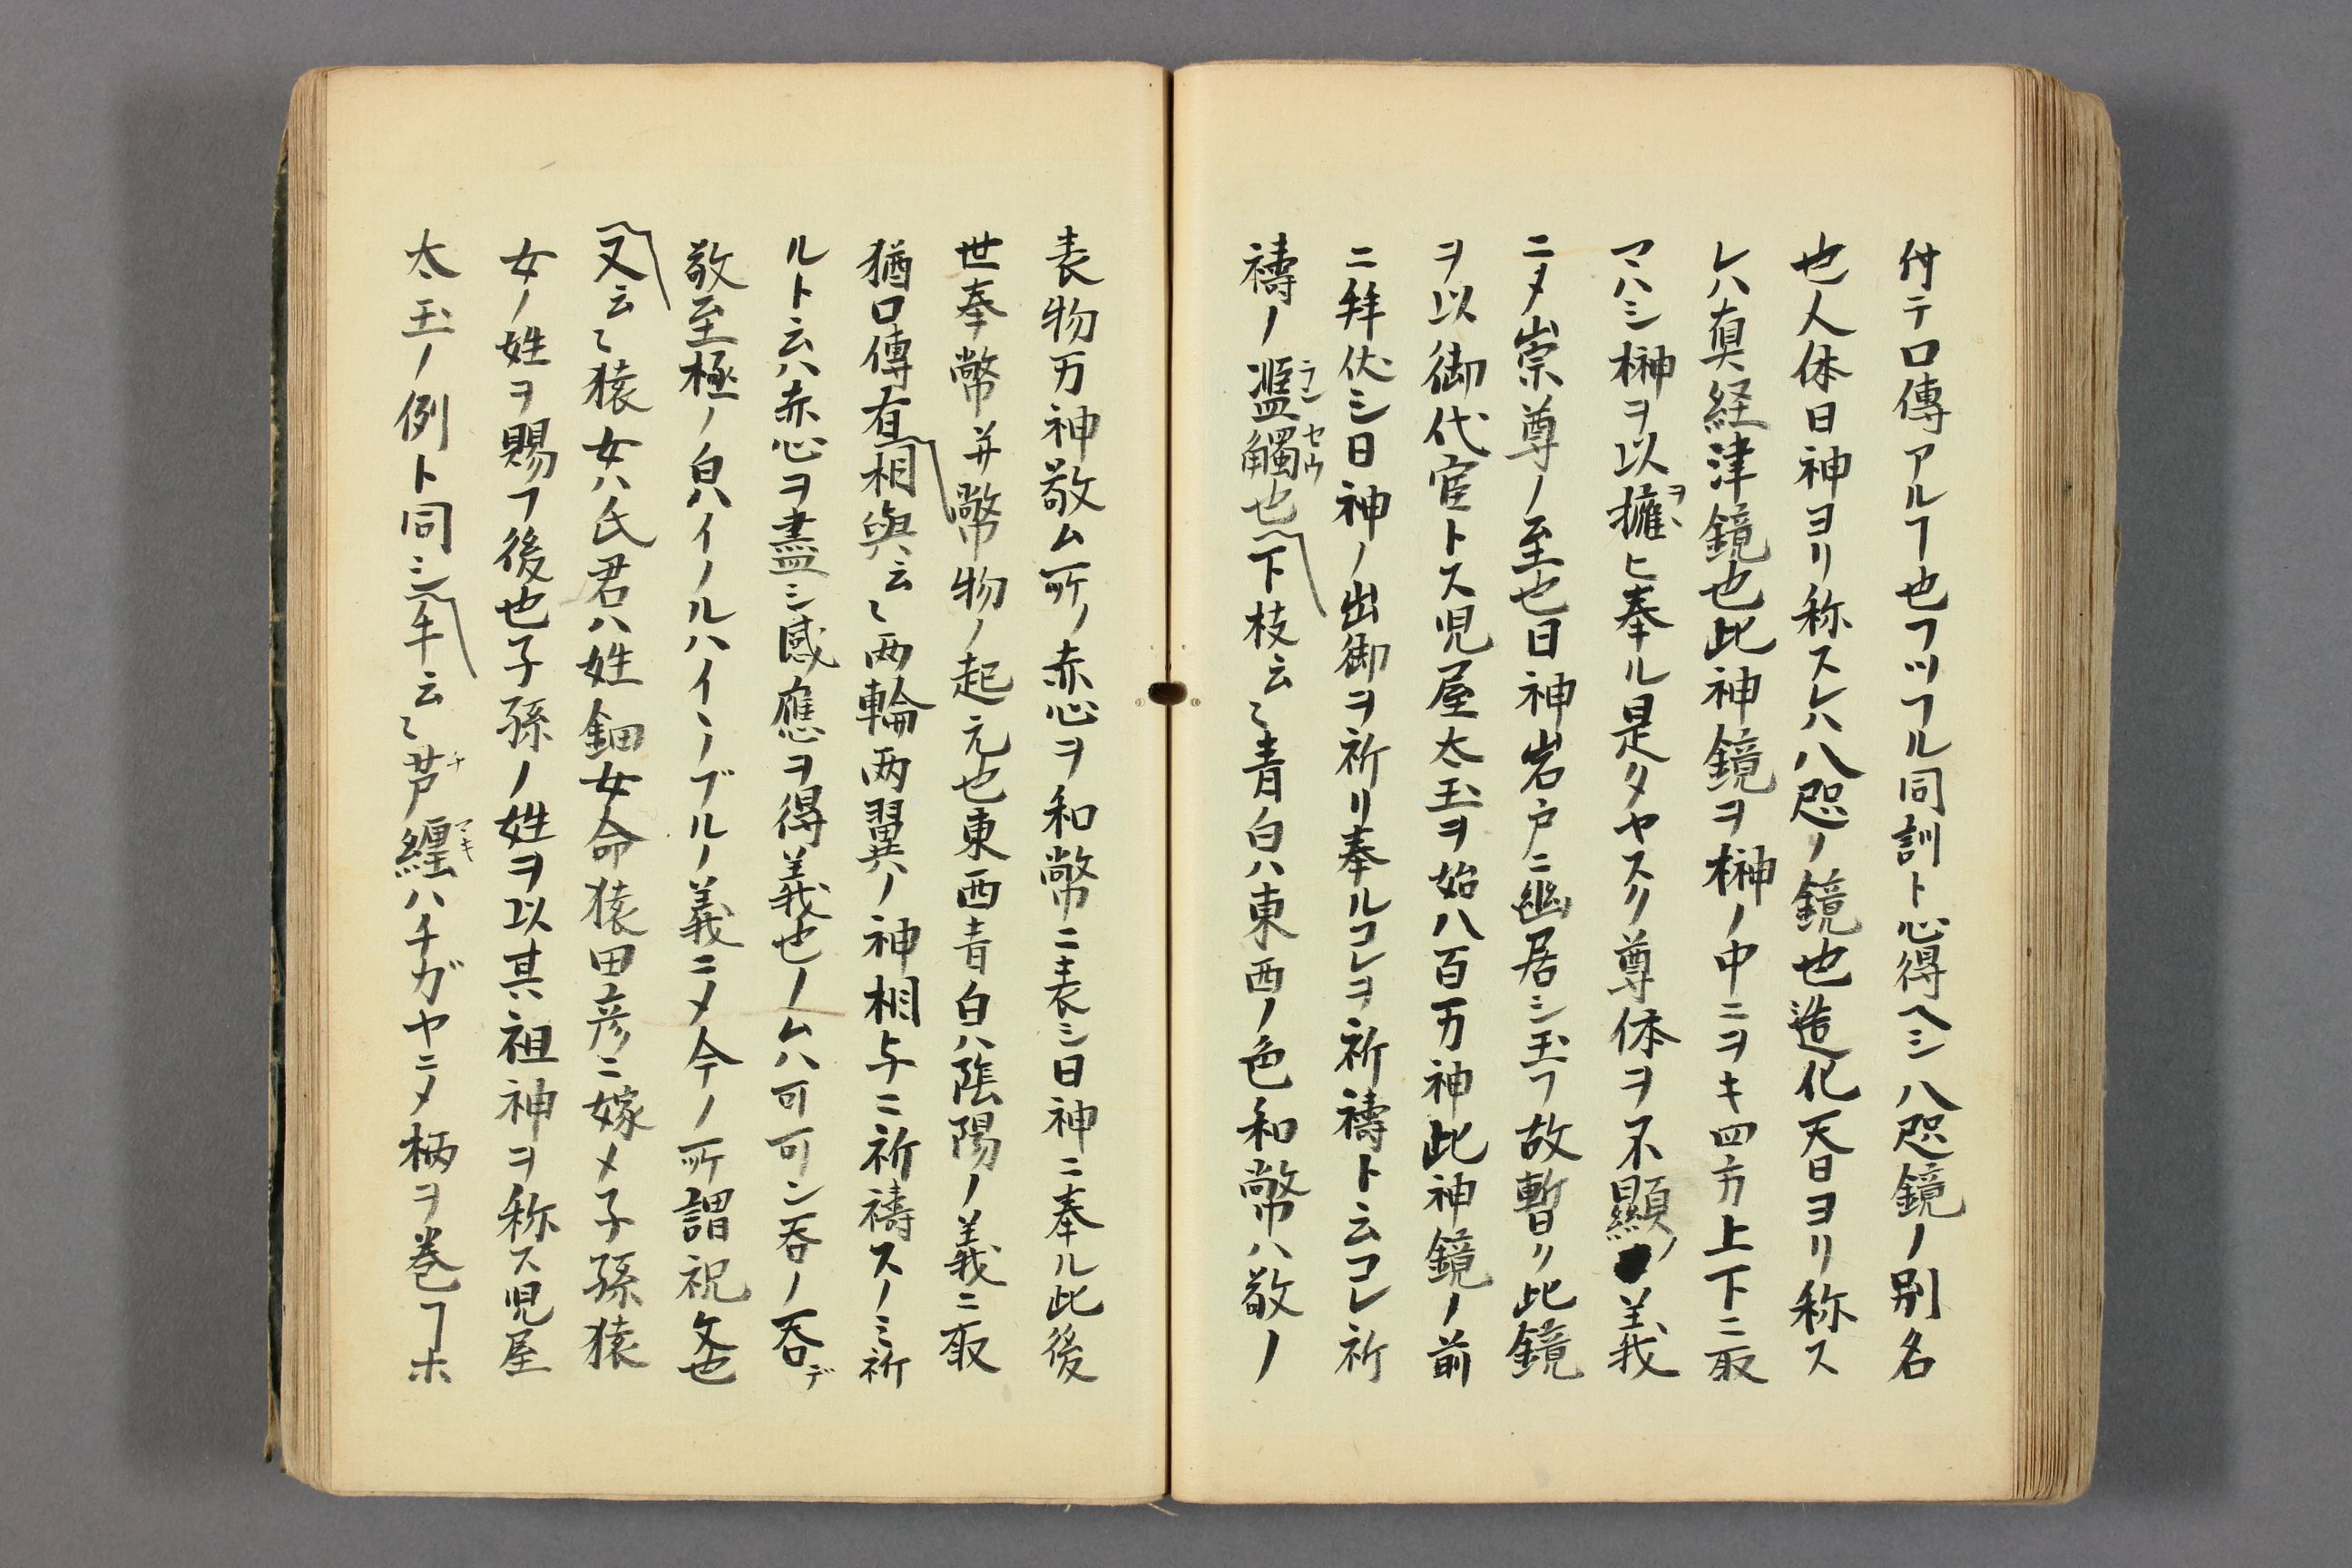 付テ口傳アルヿ也フツフル同訓ト心得ヘシ八咫鏡ノ別名
也人体日神ヨリ称スレハ八咫ノ鏡也造化天日ヨリ称ス
レハ真経津鏡也此神鏡ヲ榊ノ中ニヲキ四方上下ニ取
マハシ榊ヲ以擁ヒ奉ル是タヤスク尊体ヲ不顕ノ義
ニメ崇尊ノ至也日神岩戸ニ幽居シ玉フ故暫ク此鏡
ヲ以御代官トス児屋太玉ヲ始八百万神此神鏡ノ前
ニ拜伏シ日神ノ出御ヲ祈リ奉ルコレヲ祈禱ト云コレ祈
禱ノ濫觴也下枝云〻青白ハ東西ノ色和幣ハ敬ノ
表物万神敬ム所ノ赤心ヲ和幣ニ表シ日神ニ奉ル此後
世奉幣并幣物ノ起元也東西青白ハ陰陽ノ義ニ取
猶口傳有相與云〻両輪両翼ノ神相与ニ祈禱スノミ祈
ルト云ハ赤心ヲ盡シ感應ヲ得義也ノムハ可可ン呑ノ呑デ
敬至極ノ白ハイノルハイヽノブルノ義ニメ今ノ所謂祝文也
又云〻猿女ハ氏君ハ姓鈿女命猿田彦ニ嫁メ子孫猿
女ノ姓ヲ賜フ後也子孫ノ姓ヲ以其祖神ヲ称ス児屋
太玉ノ例ト同シ手云〻茅纏ハチガヤニメ柄ヲ巻ヿホ